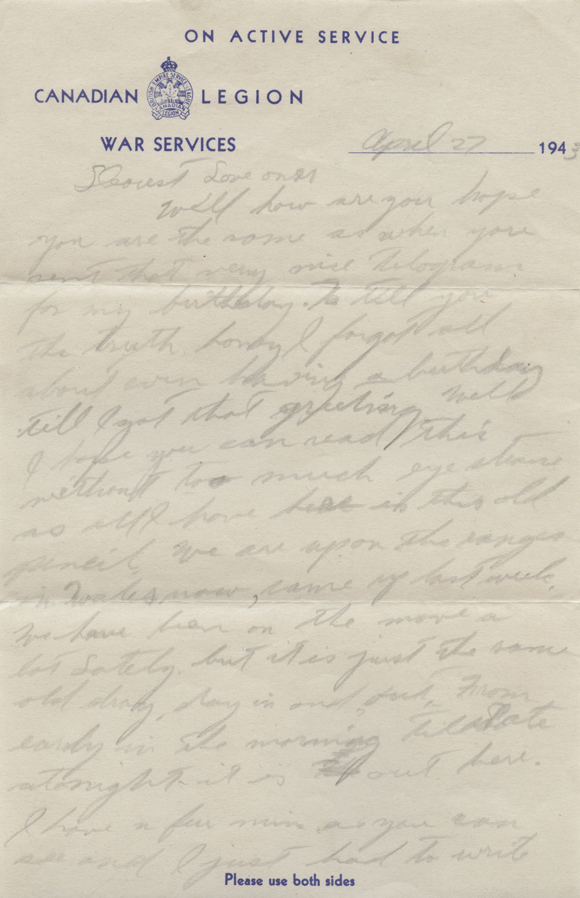 ON ACTIVE SERVICE
CANADIAN LEGION
WAR SERVICES
April 27 1943
Dearest Love ones
Well how are you hope
you are the same as when you
sent that very nice telegram
for my birthday. To tell you
the truth honey I forgot all
about even having a birthday
till I got that greeting Well
I hope you can read this
without too much eye strain
as all I have here is this old
pencil. We are up on the ranges
in Wales now, came up last week.
We have been on the move a
lot lately. but it is just the same
old drag, day in and out, From
early in the morning till late
at night it is out here.
I have a few min as you can
see and I just had to write
Please use both sides